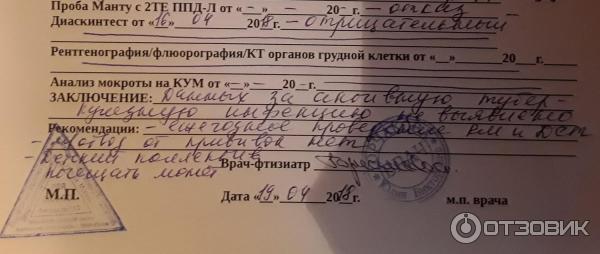 Проба Манту с 2ТЕ ППД-Л от «–» – 20 - г. – отказ
Диаскинтест от «16» 04 2018 г. – отрицательный
Рентгенография/флюорография/КТ органов грудной клетки от «__»____20__г.
Анализ мокроты на КУМ от «–» – 20 - г.
ЗАКЛЮЧЕНИЕ: Данных за активную тубер-
кулезную инфекцию не выявлено
Рекомендации: – ежегодное проведение RM и DST
– от прививок нет
– Детский коллектив
посещать может
Врач-фтизиатр
Дата «19» 04 2018г.
М.П.
м.п. врача
ОТЗОВИК